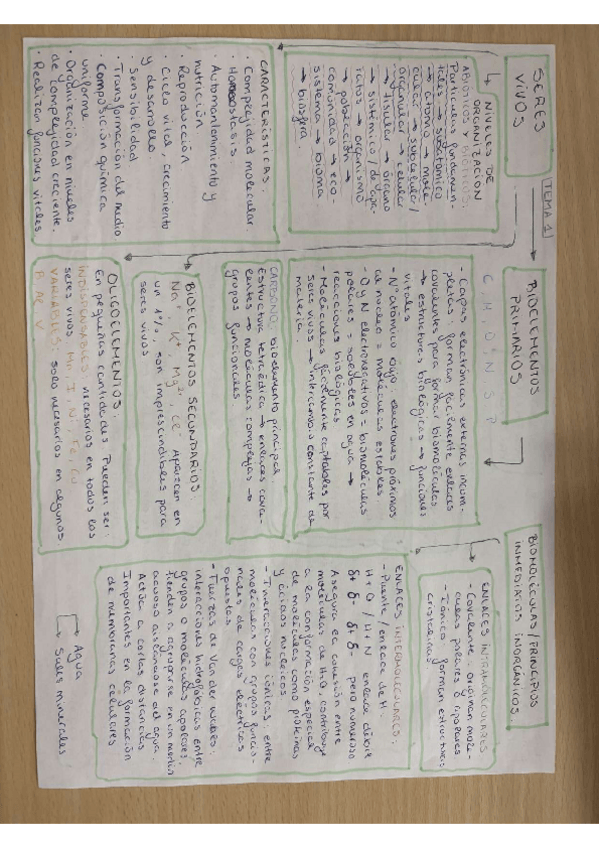 TEMA 1
SERES
VIVOS
NIVELES DE
ORGANIZACIÓN
ABIÓTICOS Y BIÓTICOS:
Partículas fundamen-
tales → subatómico
→ átomo → mole-
cular → subcelular /
organular → celular
→ tisular → órgano
→ sistémico / de apa-
ratos → organismo
→ población →
comunidad → eco-
sistema → bioma
→ biosfera.
CARACTERÍSTICAS:
· Complejidad molecular.
· Homeostasis
· Automantenimiento y
nutrición
· Reproducción
· Ciclo vital, crecimiento
y desarrollo
· Sensibilidad
· Transformación del medio
· Composición química
uniforme
· Organización en niveles
de complejidad creciente.
· Realizan funciones vitales
BIOELEMENTOS
PRIMARIOS
C, H, O, N, S, P
- Capas electrónicas externas incom-
pletas: forman fácilmente enlaces
covalentes para formar biomoléculas
→ estructuras biológicas → funciones
vitales
- Nº atómico bajo, electrones próximos
al núcleo = moléculas estables.
- O y N electronegativos = biomoléculas
polares = solubles en agua →
reacciones biológicas
- Moléculas fácilmente captables por
seres vivos → intercambio constante de
materia.
CARBONO: bioelemento principal
Estructura tetraédrica → enlaces cova-
lentes → moléculas complejas →
grupos funcionales.
BIOELEMENTOS SECUNDARIOS
Na⁺, K⁺, Mg²⁺, Cl⁻ Aparecen en
un 1%, son imprescindibles para
seres vivos
OLIGOELEMENTOS:
En pequeñas cantidades. Pueden ser:
INDISPENSABLES: necesarios en todos los
seres vivos, Mn, I, Ni, Fe, Cu
VARIABLES: solo necesarios en algunos.
B, Al, V
BIOMOLÉCULAS / PRINCIPIOS
INMEDIATOS INORGÁNICOS.
ENLACES INTRAMOLECULARES
- Covalente: originan molé-
culas polares o apolares
- Iónico: forman estructuras
cristalinas
ENLACES INTERMOLECULARES:
- Puente / enlace de H.
H + O / H + N enlace débil
δ+ δ- δ+ δ- pero numeroso
Asegura la cohesión entre
moléculas de H₂O, contribuye
a la conformación especial
de moléculas como proteínas
y ácidos nucleicos
- Interacciones iónicas: entre
moléculas con grupos funcio-
nales de cargas eléctricas
opuestas
- Fuerzas de Van der Waals:
interacciones hidrofóbicas entre
grupos o moléculas apolares,
tienden a agruparse en un medio
acuoso aislándose del agua.
Actúa a cortas distancias
Importantes en la formación
de membranas celulares
Agua
Sales minerales